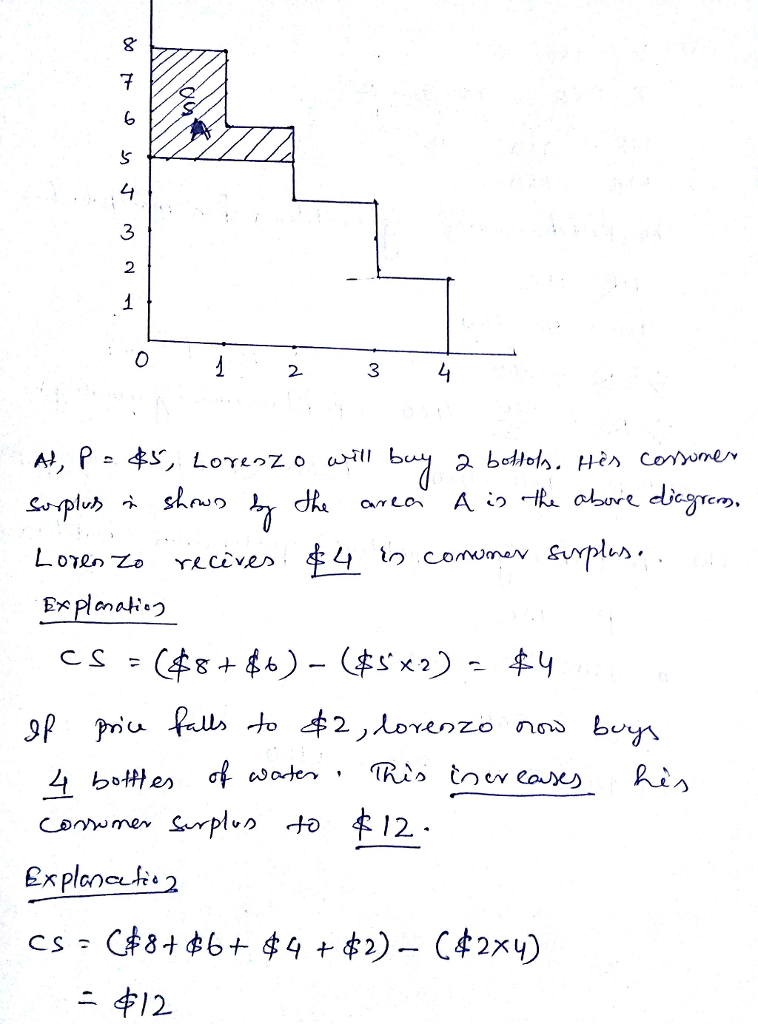 8
7
6
5
4
3
2
1
CS
A
0 1 2 3 4
At, P = $5, Lorenzo will buy 2 bottols. His consumer
surplus is shown by the area A in the above diagram.
Lorenzo recives $4 in consumer surplus.
Explanation
CS = ($8 + $6) - ($5 x 2) = $4
If price falls to $2, lorenzo now buys
4 botttles of water. This increases his
consumer surplus to $12.
Explanation
CS = ($8 + $6 + $4 + $2) - ($2x4)
= $12